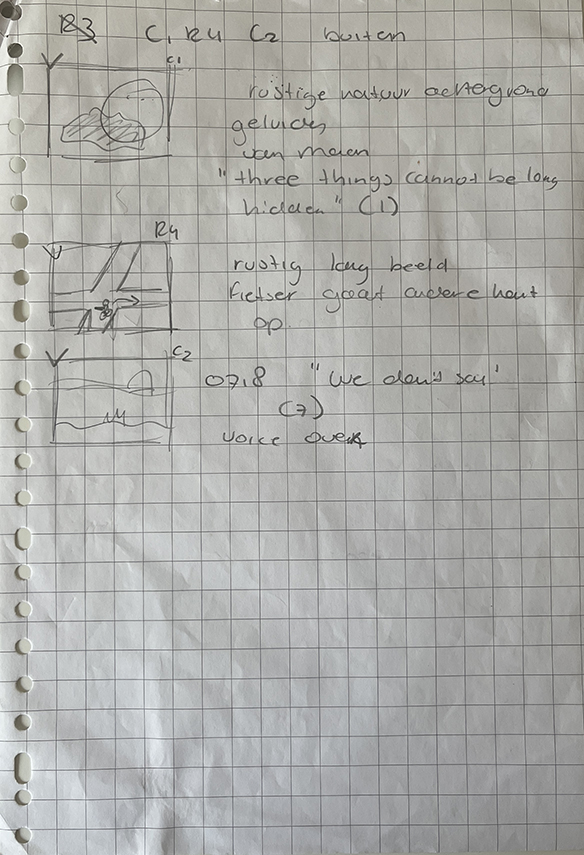 R3 C1 R4 C2 buiten
C1
rustige natuur achtergrond
geluiden
van maan
"three things cannot be long
hidden" (1)
R4
rustig lang beeld
fietser gaat andere kant
op
C2
07.8 "We don't say"
(7)
voice over